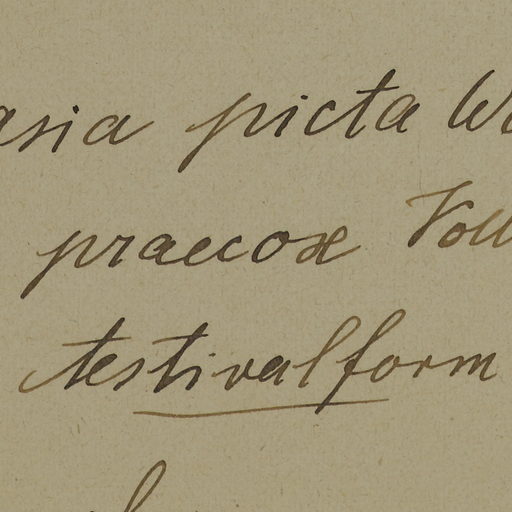 asia picta W
praecox Voll
testivalform